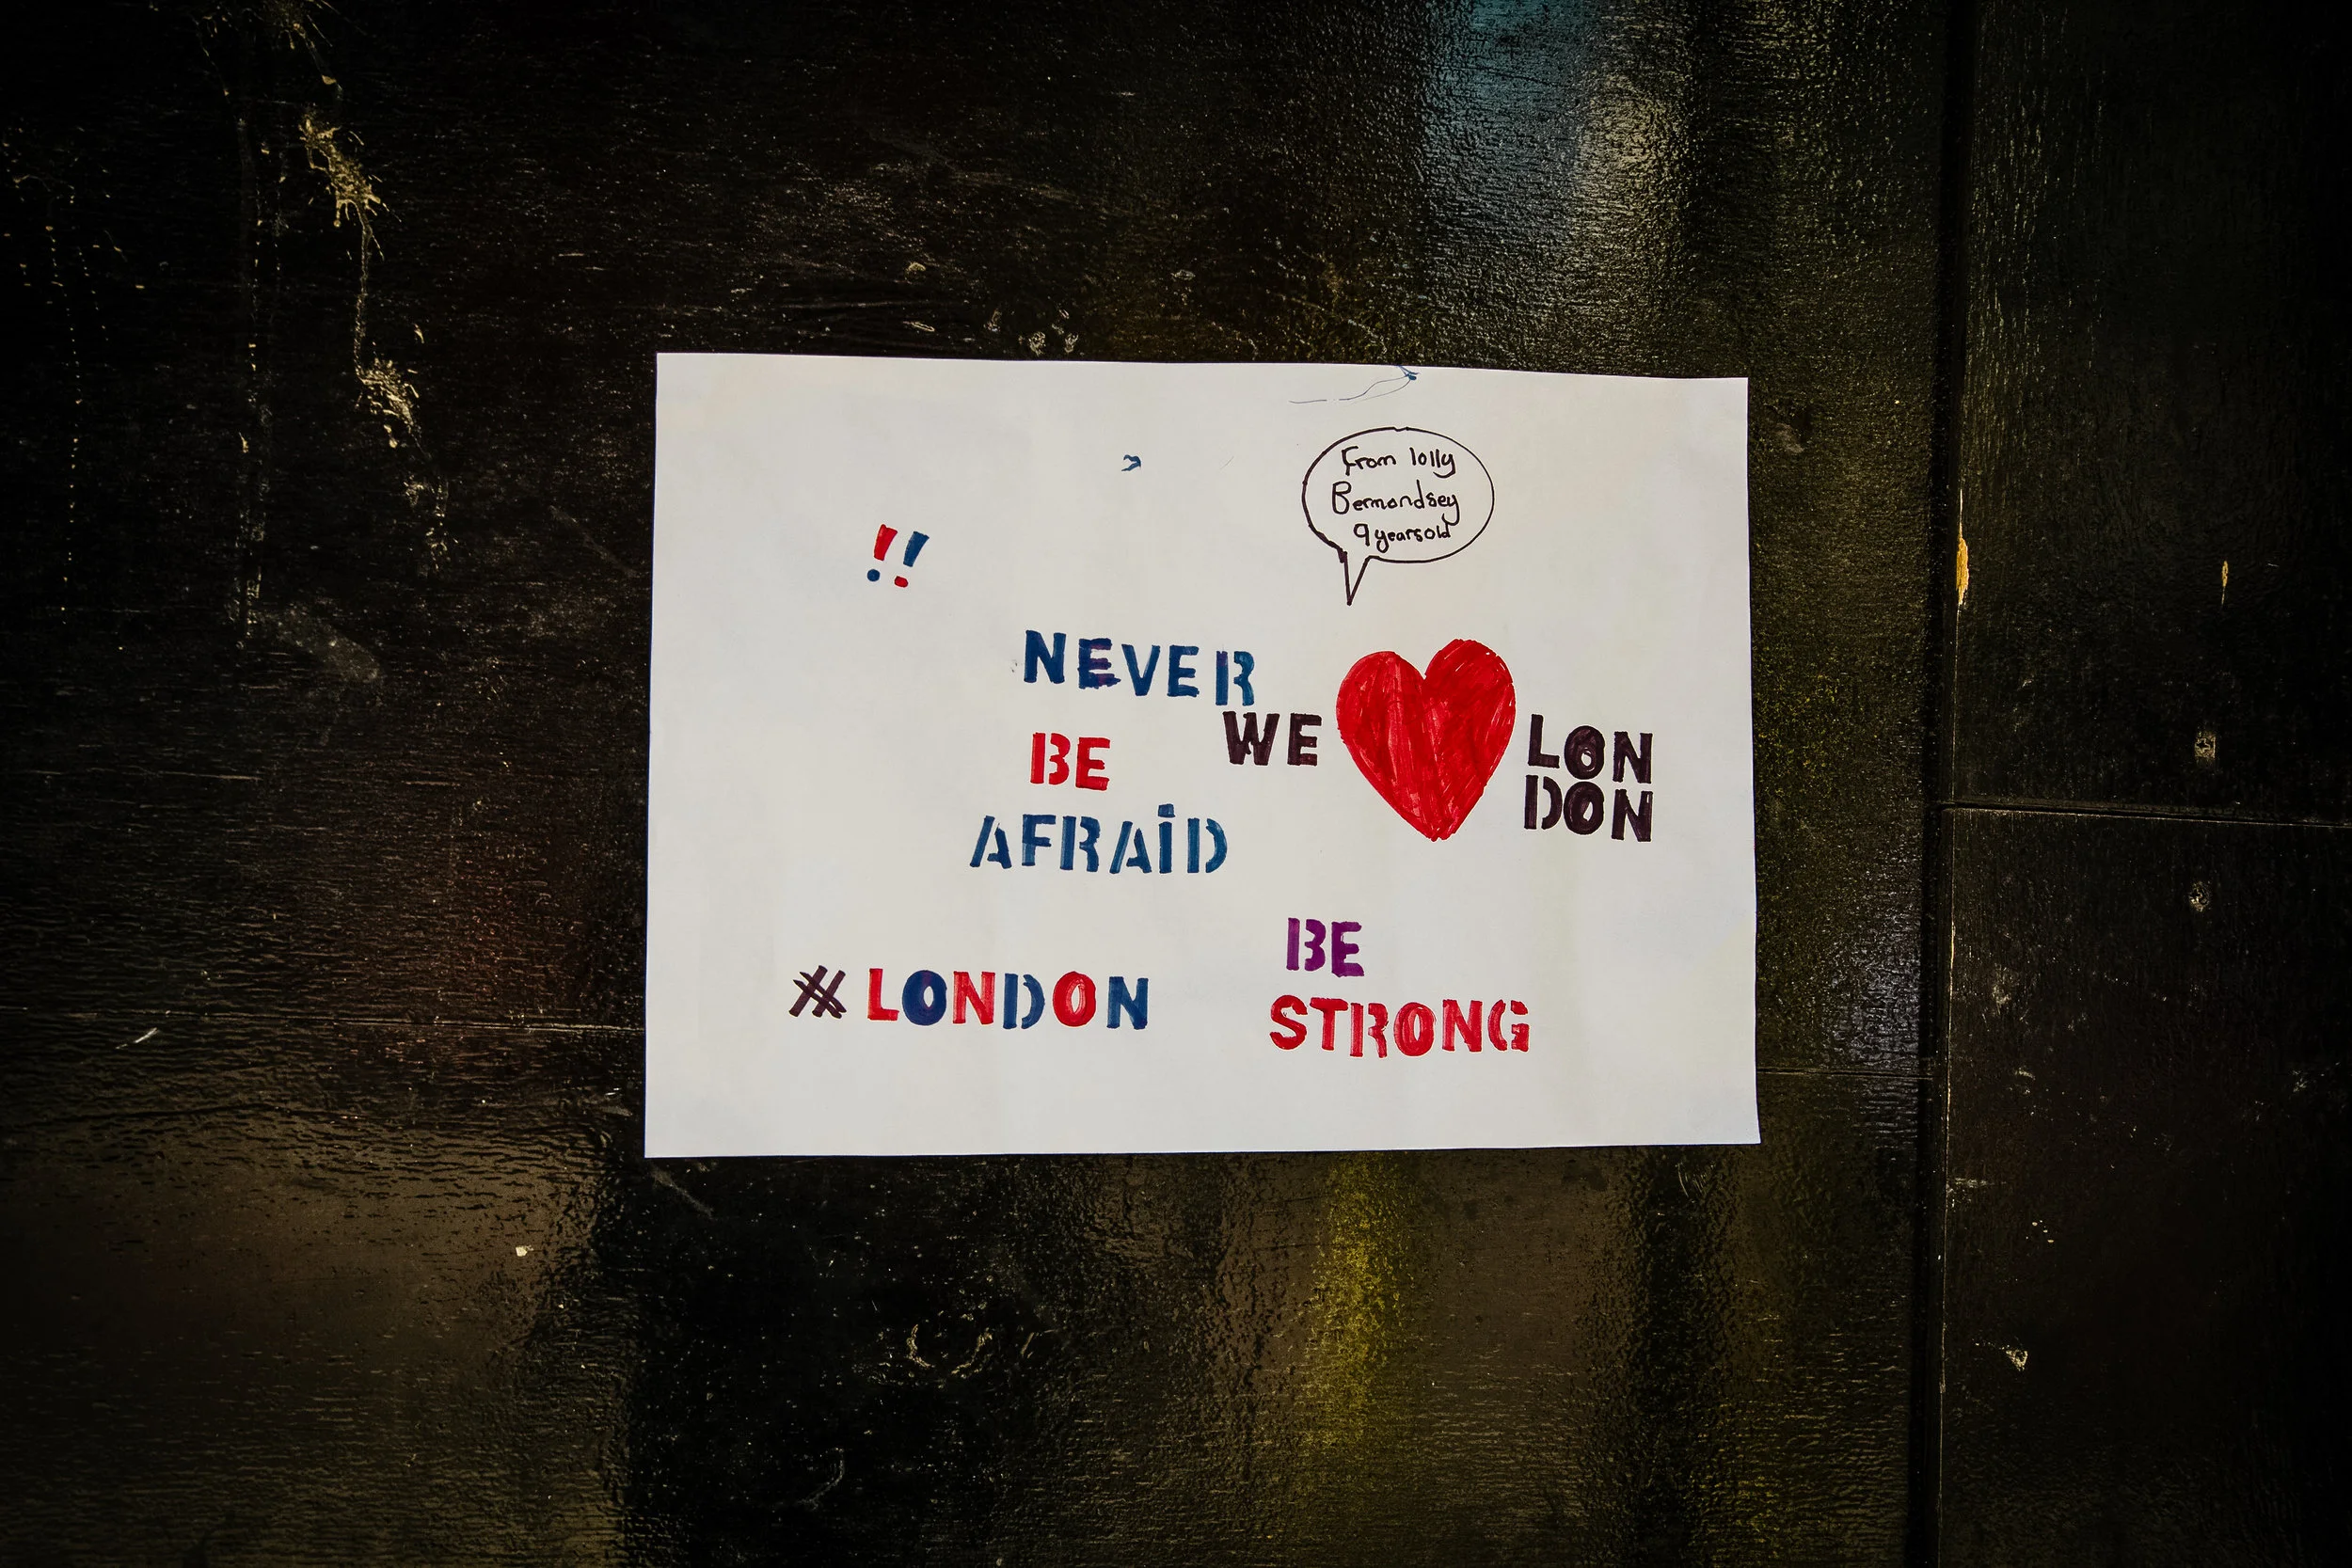 From lolly
Bermondsey
9 years old
!!
NEVER
BE
AFRAiD
WE ❤ LON
DON
#LONDON
BE
STRONG